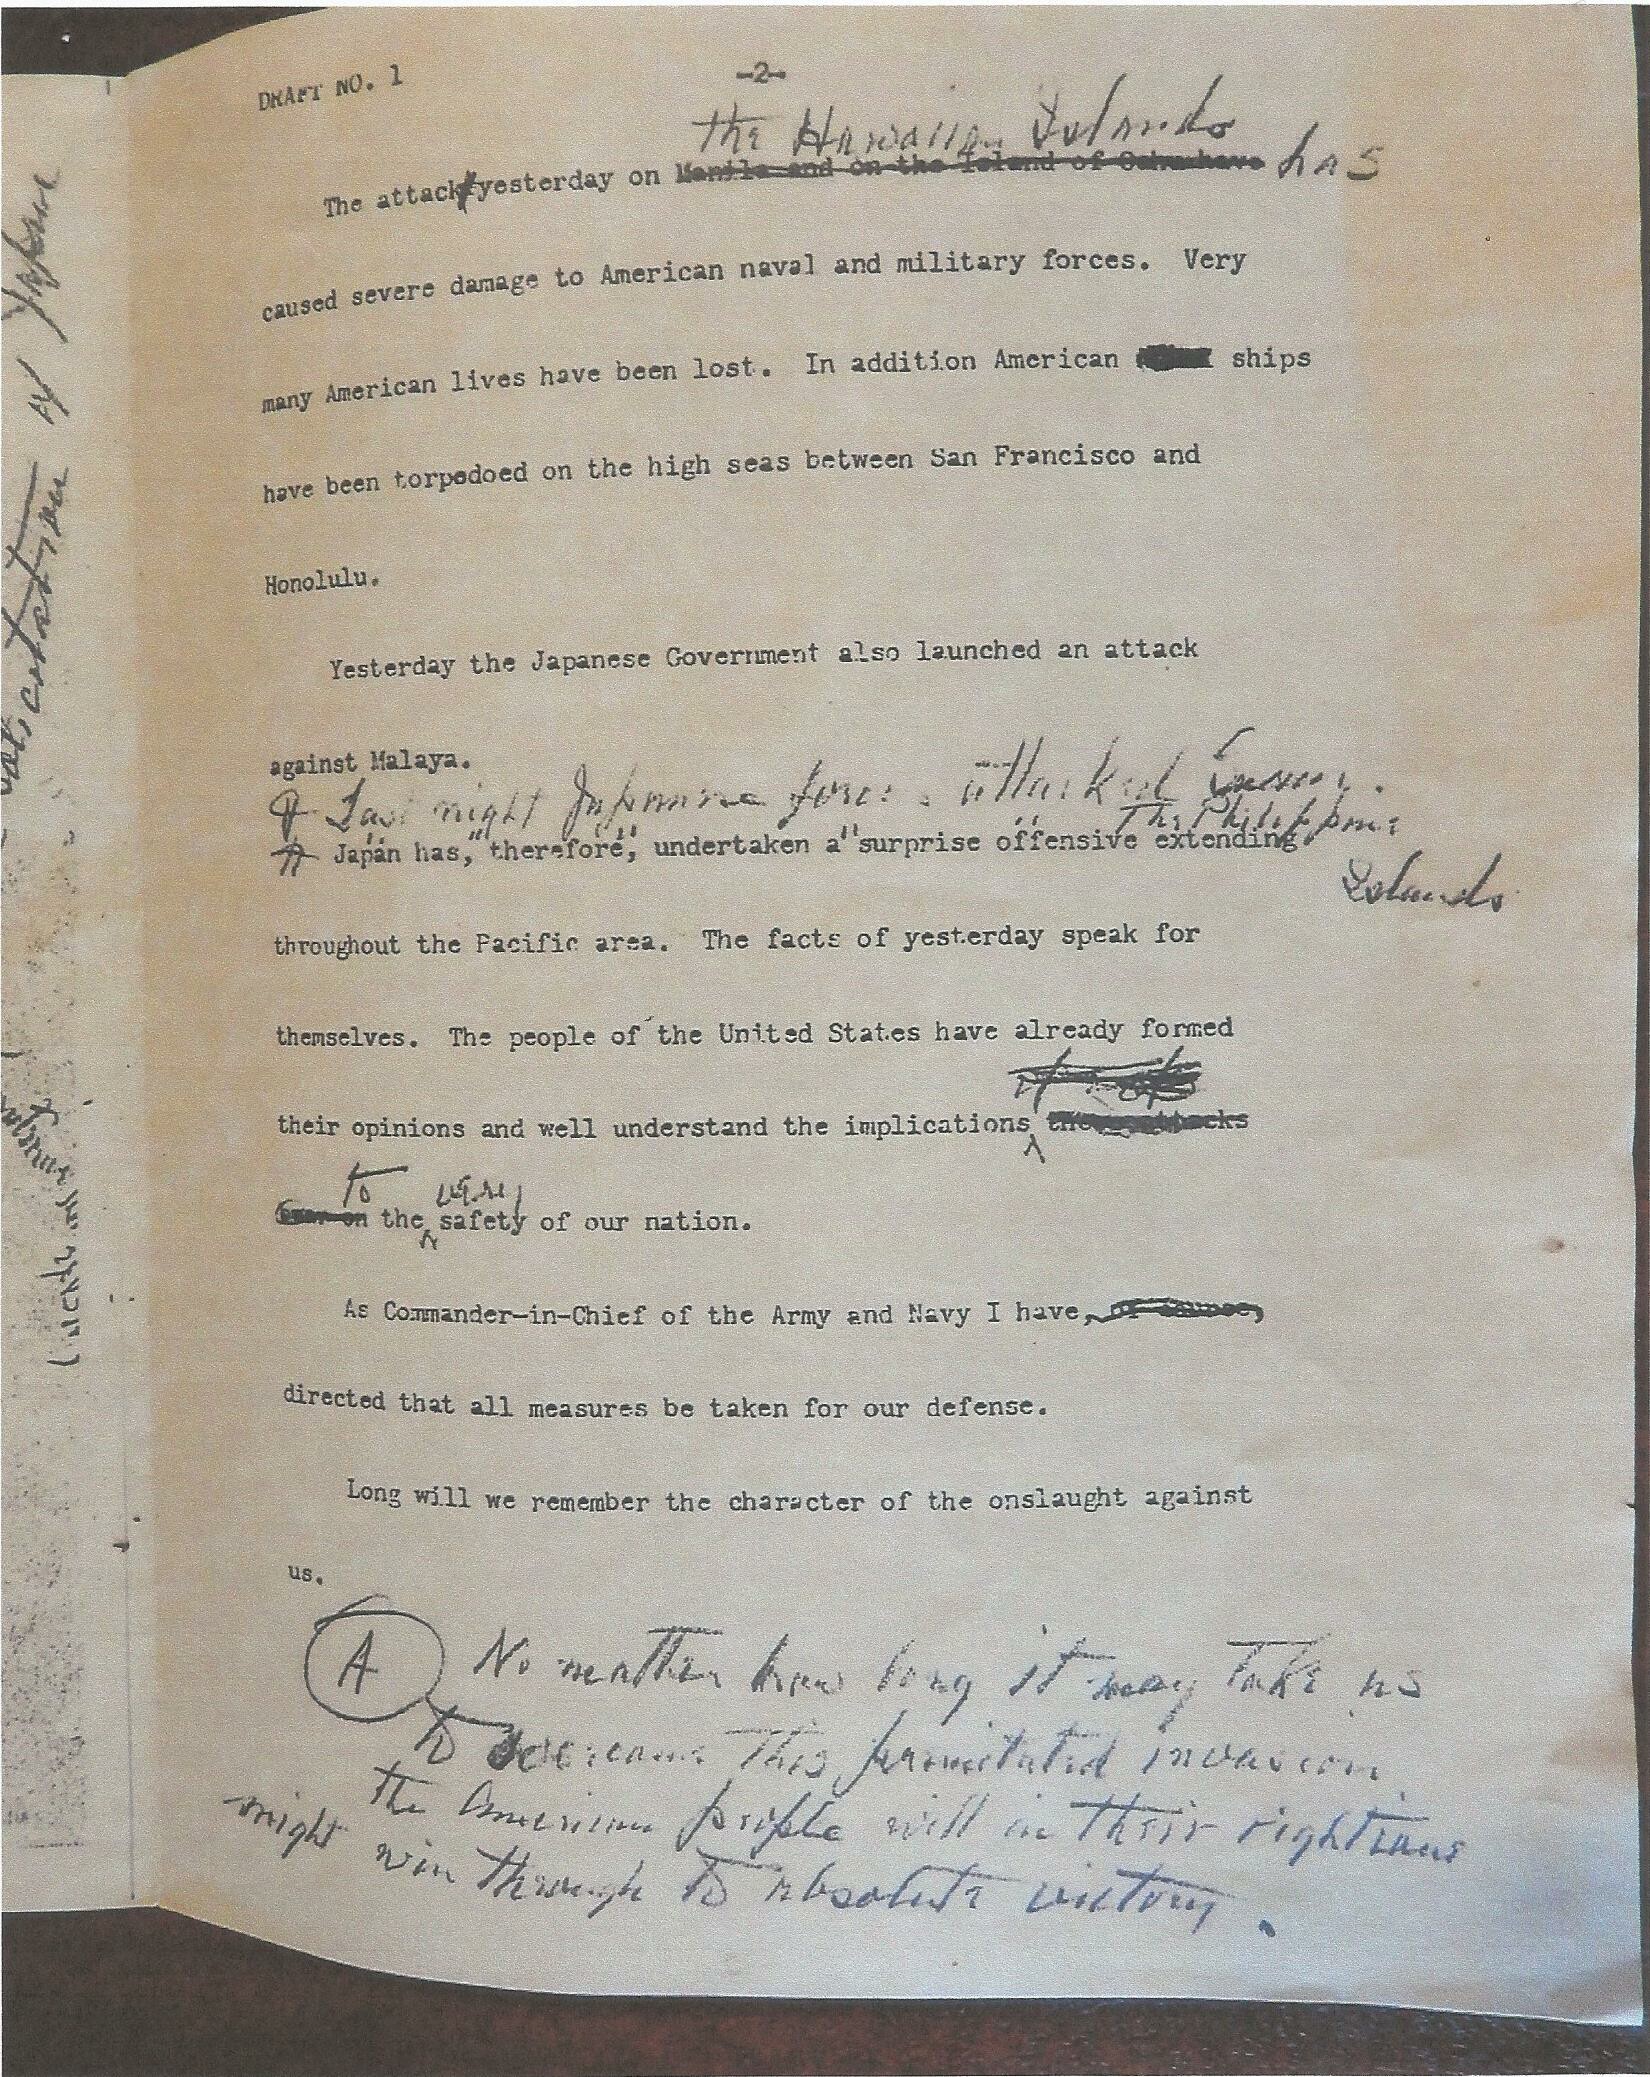 DRAFT NO. 1
-2-
the Hawaiian Islands
The attack yesterday on Manila and on the Island of Oahu have has
caused severe damage to American naval and military forces. Very
many American lives have been lost. In addition American ships
have been torpedoed on the high seas between San Francisco and
Honolulu.
Yesterday the Japanese Government also launched an attack
against Malaya.
Last night Japanese forces attacked Guam.
The Philippine
Japan has, therefore, undertaken a surprise offensive extending
Islands
throughout the Pacific area. The facts of yesterday speak for
themselves. The people of the United States have already formed
their opinions and well understand the implications these attacks
to very
bear on the safety of our nation.
As Commander-in-Chief of the Army and Navy I have, of course,
directed that all measures be taken for our defense.
Long will we remember the character of the onslaught against
us.
A No matter how long it may take us
to overcome this premeditated invasion
the American people will in their righteous
might win through to absolute victory.
of Japan